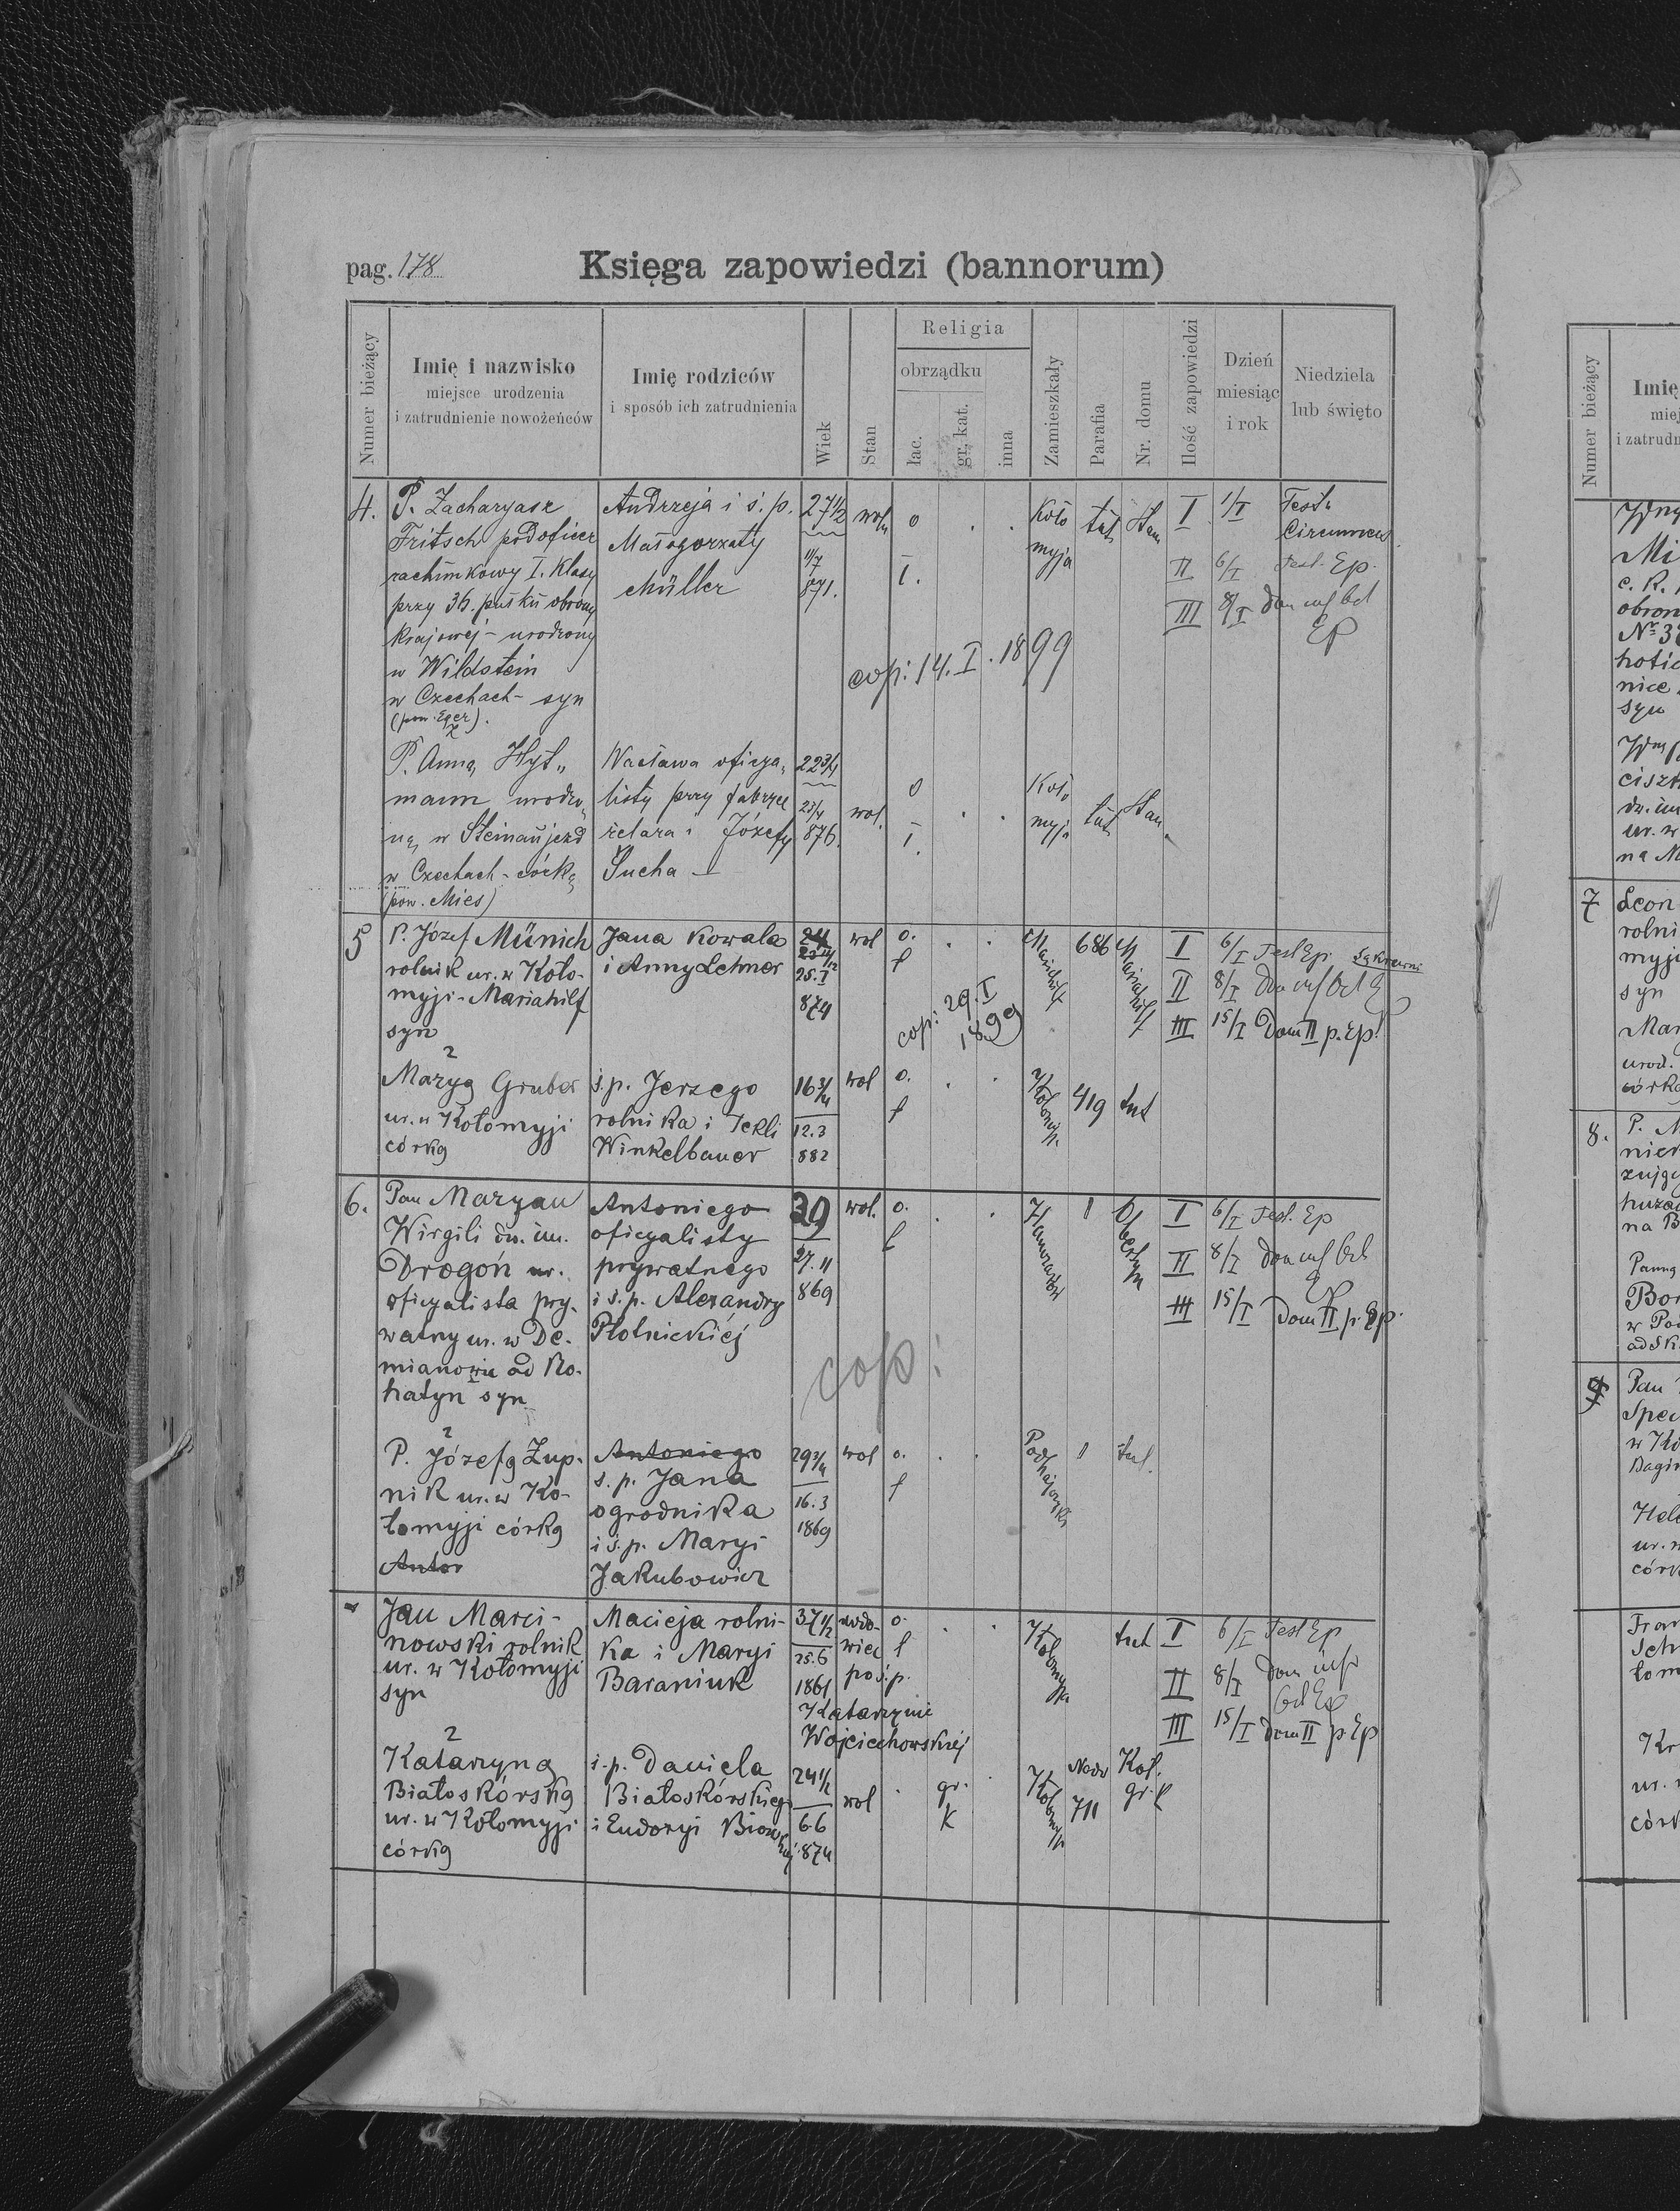 pag. 178
Księga zapowiedzi (bannorum)
Numer bieżący
Imię i nazwisko
miejsce urodzenia
i zatrudnienie nowożeńców
Imię rodziców
i sposób ich zatrudnienia
Wiek
Stan
Religia
obrządku
łac.
gr. kat.
inna
Zamieszkały
Parafia
Nr. domu
Ilość zapowiedzi
Dzień
miesiąc
i rok
Niedziela
lub święto
4.
P. Zacharyasz
Fritsch podoficer
rachunkowy I. Klasy
przy 36. pułku obrony
Krajowej - urodzony
w Wildstein
w Czechach - syn
(pow. Eger).
Andrzeja i ś. p.
Małogorzaty
Müller
27 1/2
11/7
871.
woln
o
ł.
Koło
myja
tut
I 1/I Festu
Circumcis.
II 6/I Fest. Ep.
III 8/I Dom inf Oct
Ep
cop: 14. I. 1899
z
P. Anną
mann urodzo
ną w
w Czechach - córką
(pow. Mies)
Wacława oficya
listy przy fabryce
i Józefy
Sucha
22 3/4
23/4
876.
wol.
o
ł.
Koło
myja
tut
5
P. Józef Münich
rolnik ur. w Koło-
myji - Mariahilf
syn
Jana Kowala
i Anny Lehner
24
25. I
874
wol
o.
ł
Mariahilf
686
Mariahilf
I 6/I Fest Ep.
II 8/I Dom inf Oct E
III 15/I Dom II p. Ep.
cop: 29. I
1899
z
Maryą Gruber
ur. w Kołomyji
córką
ś. p. Jerzego
rolnika i Tekli
Winkelbauer
16 3/4
12.3
882
wol
o.
ł
Kołomyja
419
tut
6.
Pan Maryan
Wirgili dw. im.
Drogoń ur.
oficyalista pry-
watny ur. w De-
mianowie ad Ro-
hatyn syn
Antoniego
oficyalisty
prywatnego
i ś. p. Alexandry
Płotnickiéj
29
27. 11
869
wol.
o.
ł
1
I 6/I Fest. Ep
II 8/I Dom inf Oct
Ep
III 15/I Dom II p. Ep.
cop:
z
P. Józefą Żup-
nik ur. w Ko-
łomyji córką
Antor
Antoniego
ś. p. Jana
ogrodnika
i ś. p. Maryi
Jakubowicz
29 3/4
16. 3
1869
wol
o.
ł
Podhajczyki
1
tut.
Jan Marci-
nowski rolnik
ur. w Kołomyji
syn
Macieja rolni-
ka i Maryi
Baraniuk
37 1/2
25.6
1861
wdo-
wiec
po ś. p.
Katarzynie
Wojciechowskiej
o.
ł
Kołomyja
tut
I 6/I Fest Ep
II 8/I Dom inf
Oct Ep
III 15/I Dom II p Ep
z
Katarzyną
Białoskórską
ur. w Kołomyji
córką
ś. p. Daniela
Białoskórskiego
i Eudoxyi
24 1/2
6.6
874
wol
gr.
k
Kołomyja
711
Koł.
gr. k
Numer bieżący
7
Leon
rolni
myji
syn
Mar
urod.
córką
8.
P. M
9
Pan
Spec
w Ko
ur. w
córk